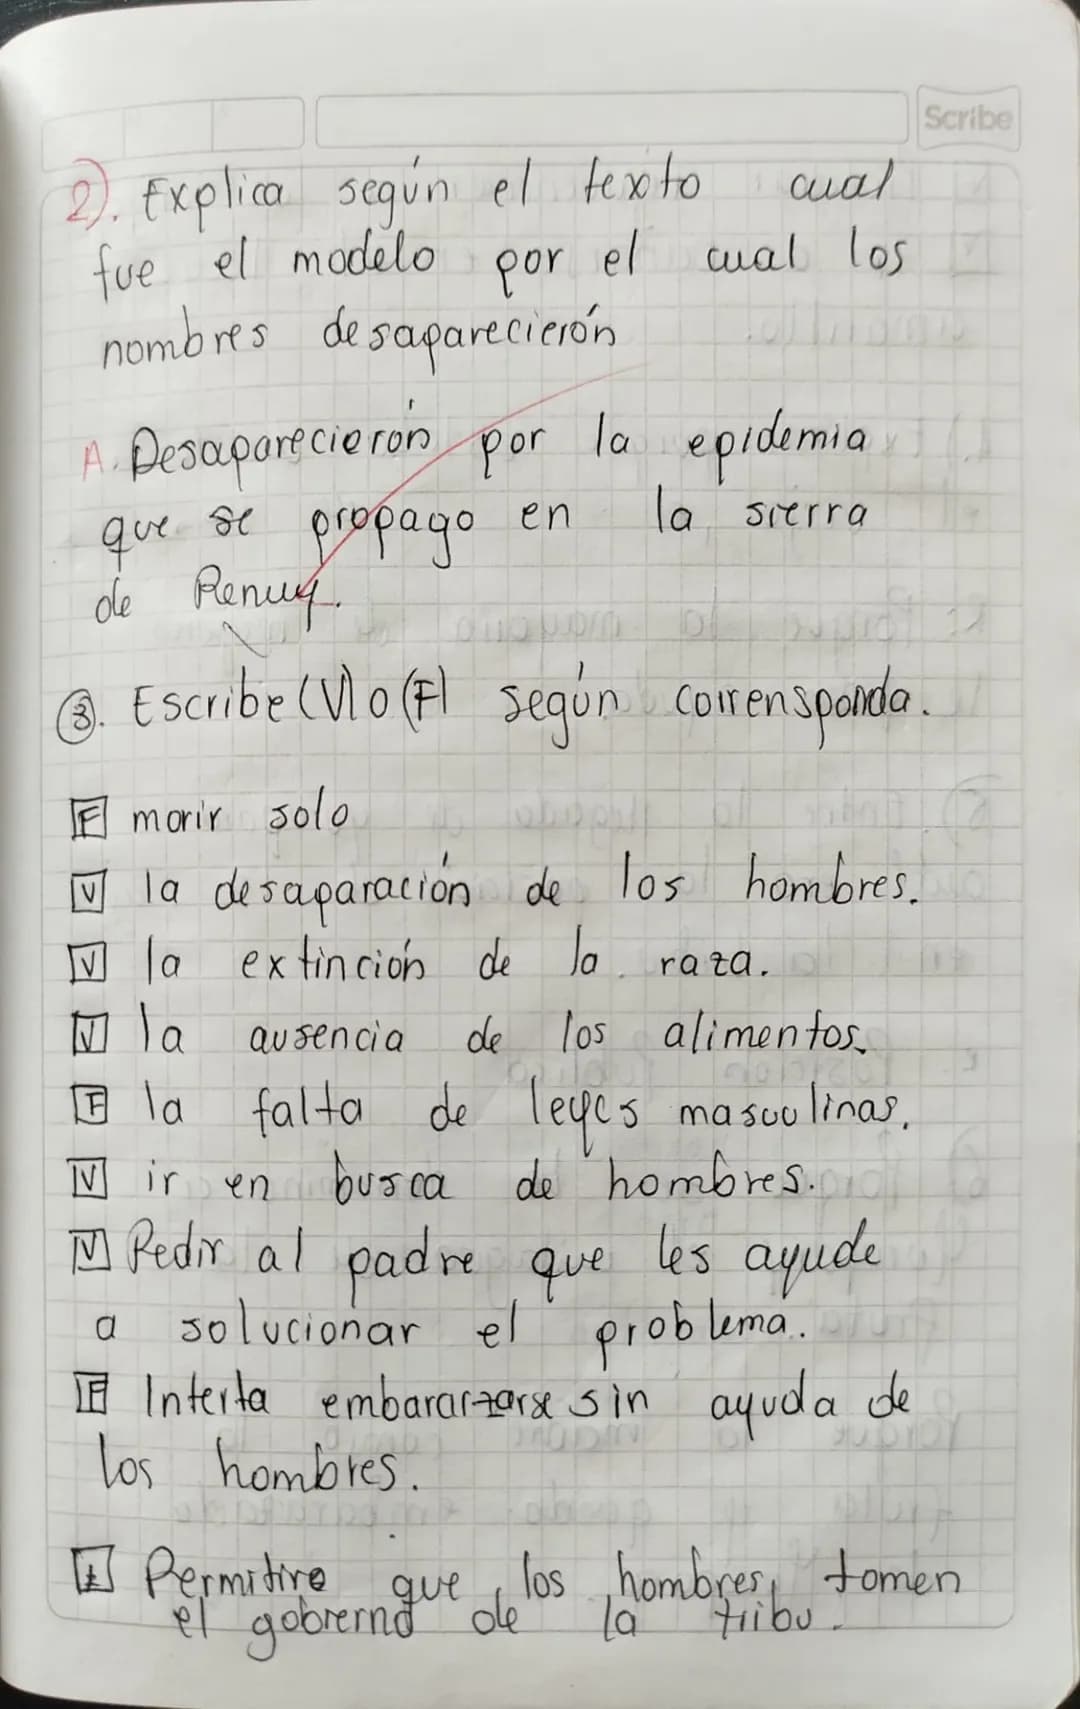 Scribe
2). Explica según el texto cual
fue el modelo por el cual los
nombres desaparecierón
A. Desaparecierón por la epidemia
que se propago en la sierra
de Renuy.
3. Escribe (V) o (F) según corrensponda.
F morir solo
V la desaparación de los hombres.
V la extinción de la raza.
V la ausencia de los alimentos.
F la falta de leyes masculinas.
V ir en busca de hombres.
V Pedir al padre que les ayude
a solucionar el problema.
F Interta embararzarse sin ayuda de
los hombres.
F Permitire que los hombres, tomen
el gobierno de la tribu.